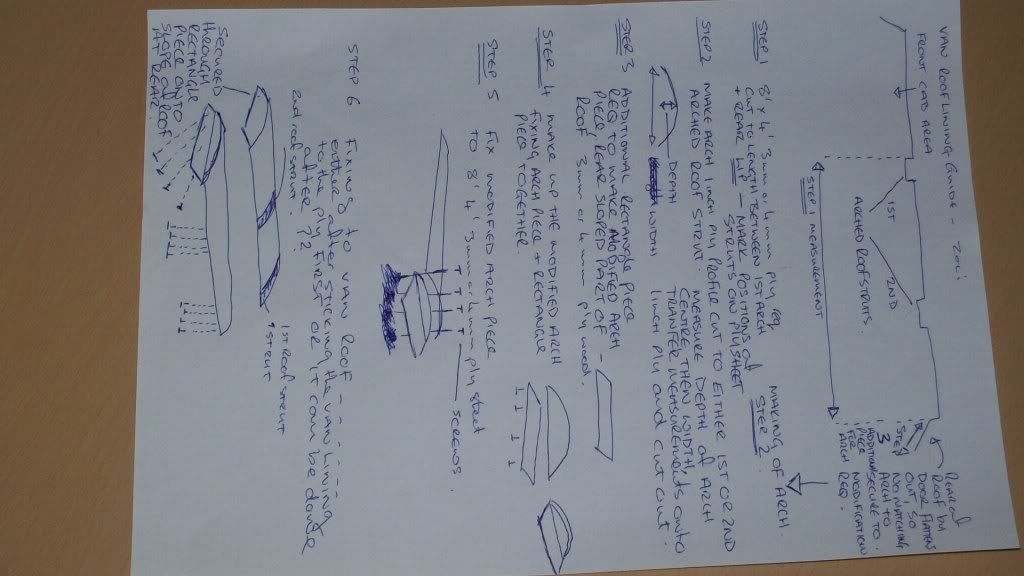 VAN ROOF LINING GUIDE - 2 OF 1
FRONT CAB AREA
1ST
2ND
ARCHED ROOF STRUTS.
STEP 1 MEASUREMENT
Rear of
Roof by
Door Flattens
out so
not matching
Arch to
secure to
modification
Req.
STEP
3
ADDITIONAL
PIECE
FOR
ARCH
STEP 1 8' x 4' 3mm or 4mm ply req
CUT TO LENGTH BETWEEN 1ST ARCH
+ REAR LIP - MARK POSITIONS OF
STRUTS ON PLYSHEET
MAKING OF ARCH.
STEP 2.
STEP 2 MAKE ARCH 1 INCH PLY PROFILE CUT TO EITHER 1ST OR 2ND
ARCHED ROOF STRUT. MEASURE DEPTH OF ARCH
CENTRE THEN WIDTH
TRANFER MEASUREMENTS ONTO
1 INCH PLY and CUT OUT.
DEPTH
WIDTH
STEP 3 ADDITIONAL RECTANGLE PIECE
REQ TO MAKE MODIFIED ARCH
PIECE REAR SLOPED PART OF -
ROOF 3mm or 4mm PLYwood.
STEP 4 make up the modified ARCH
FIXING ARCH PIECE + RECTANGLE
PIECE TOGETHER.
STEP 5 FIX MODIFIED ARCH PIECE
TO 8' 4' 3mm or 4mm ply sheet
SCREWS.
STEP 6 FIXING to van Roof - - - - -
either after sticking the van lining
to the ply FIRST OR it can be done
after ??
1st Roof STRUT
STRUT
2nd roof strut.
Secured
through
RECTANGLE
PIECE ONTO
SLOPE OF ROOF
AT REAR.